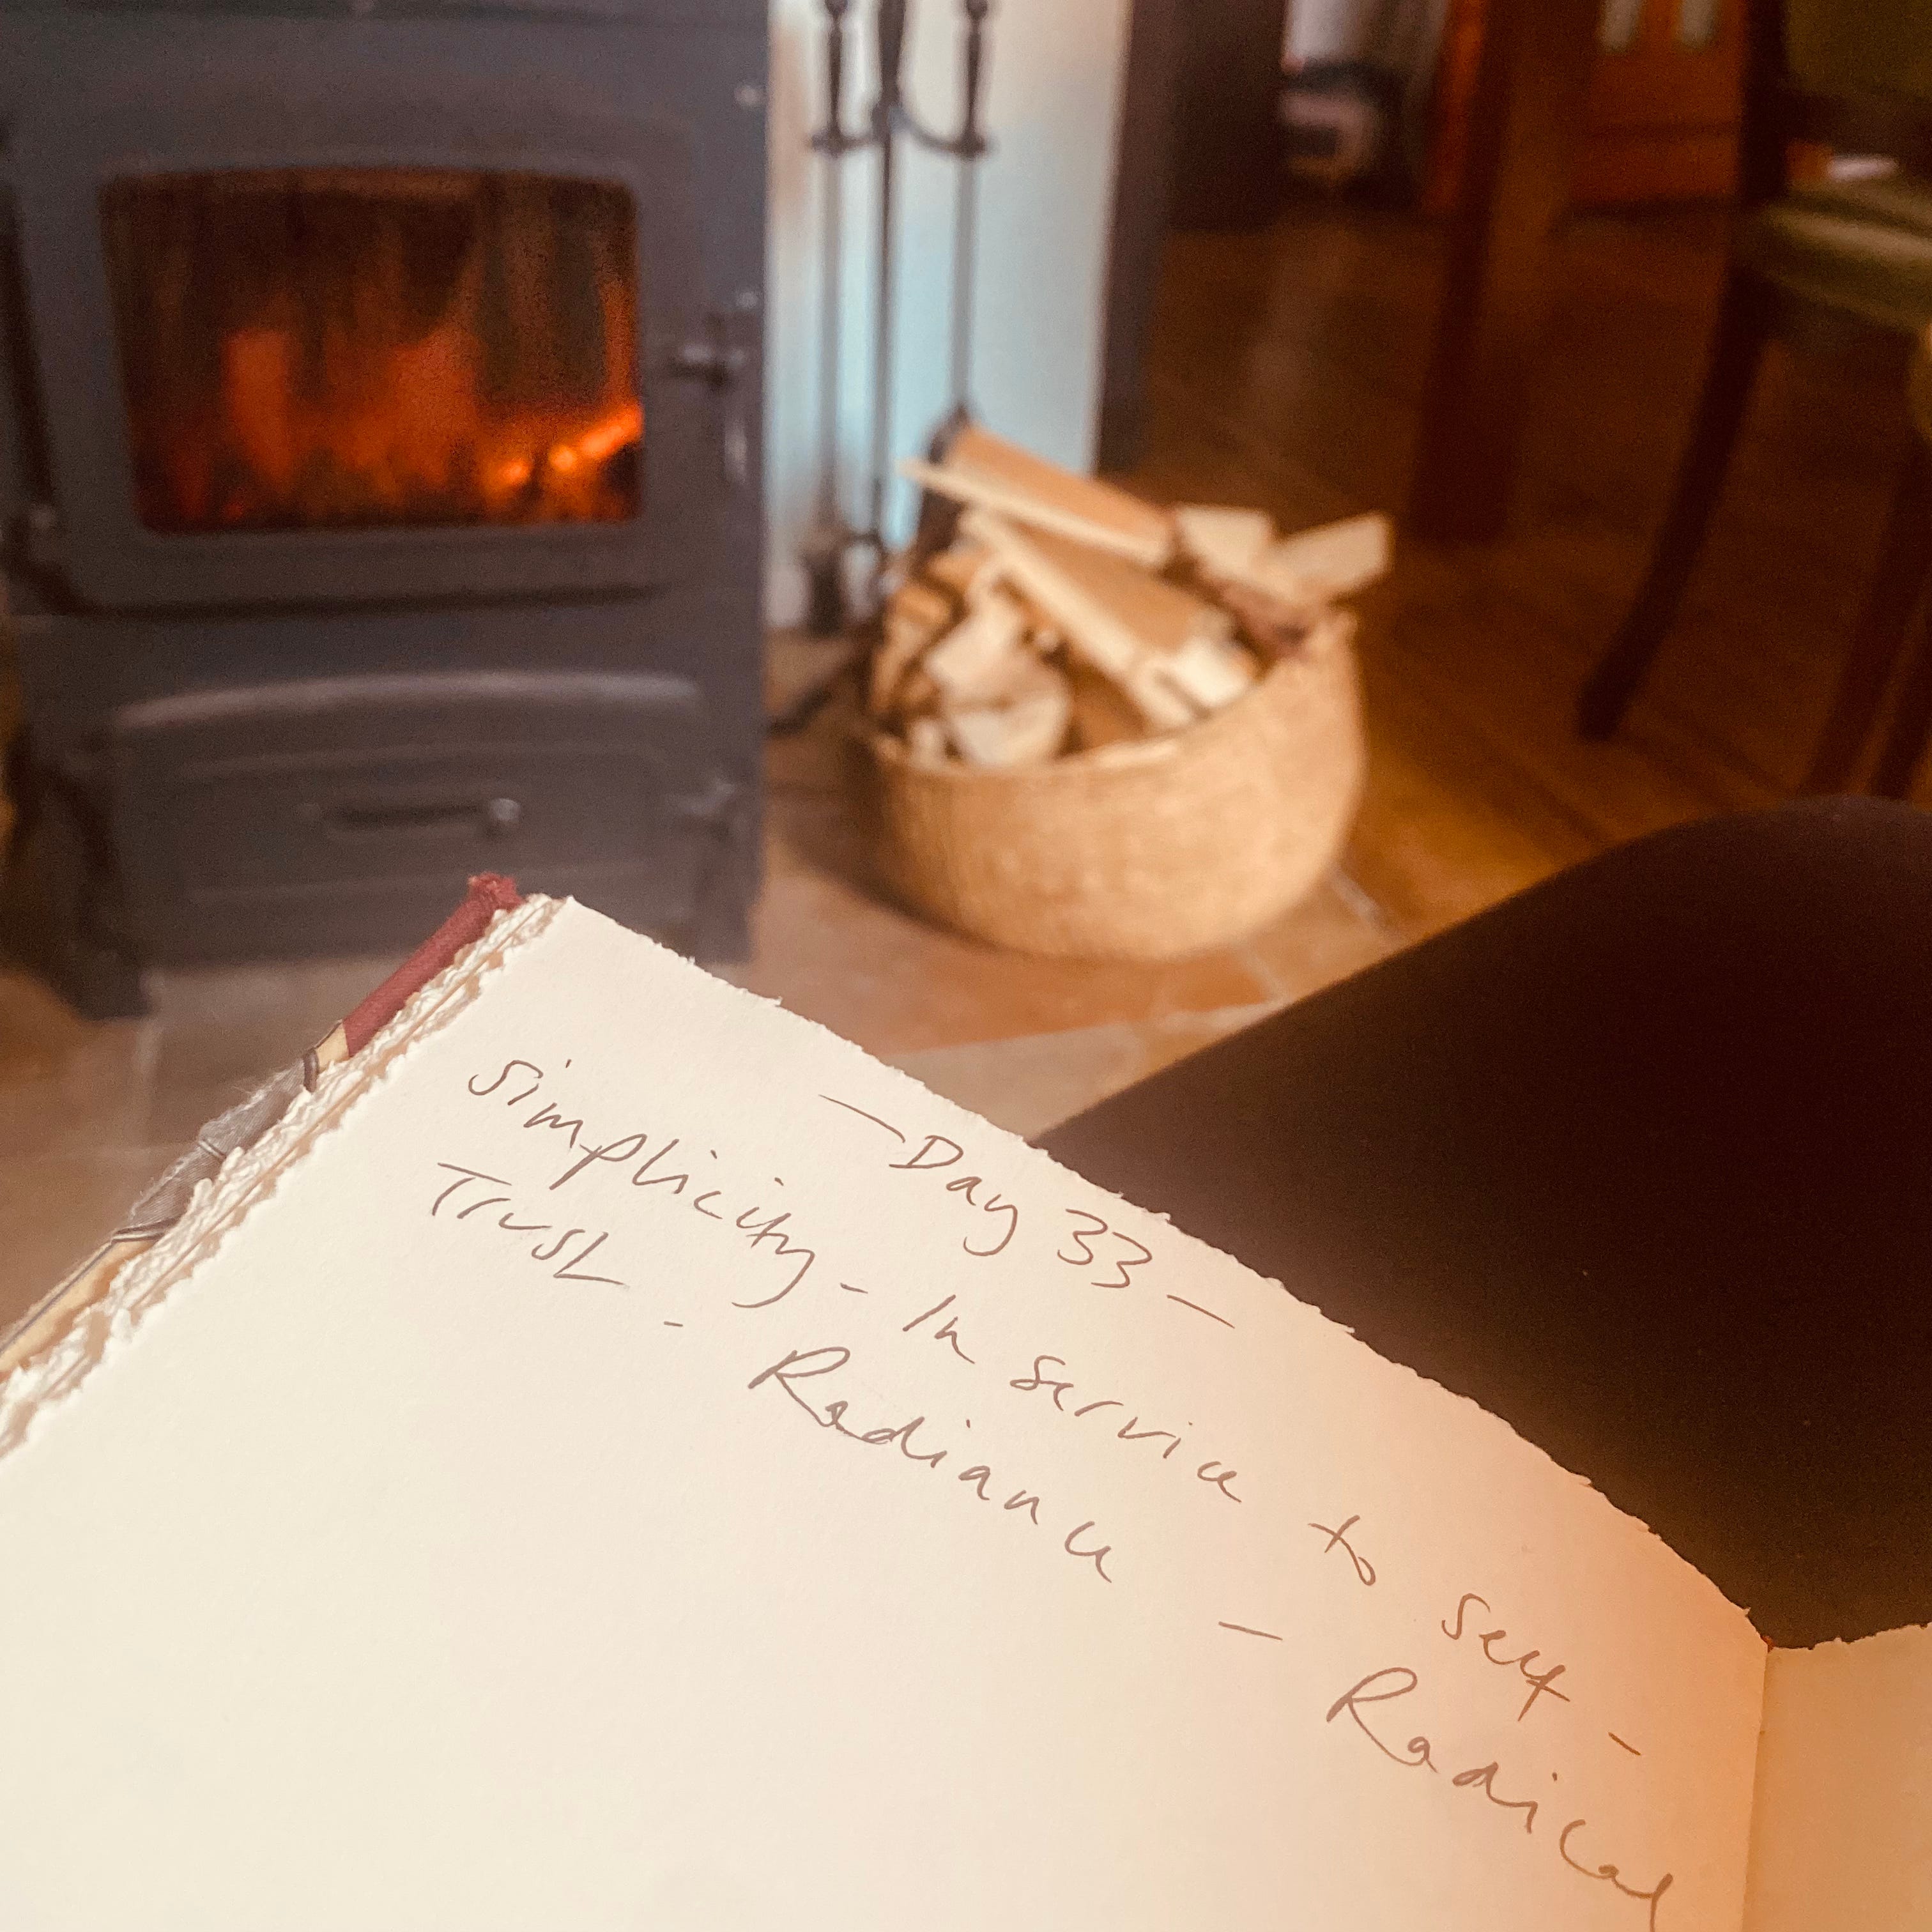 — Day 33 —
Simplicity - In service to self -
Trust - Radiance - Radical